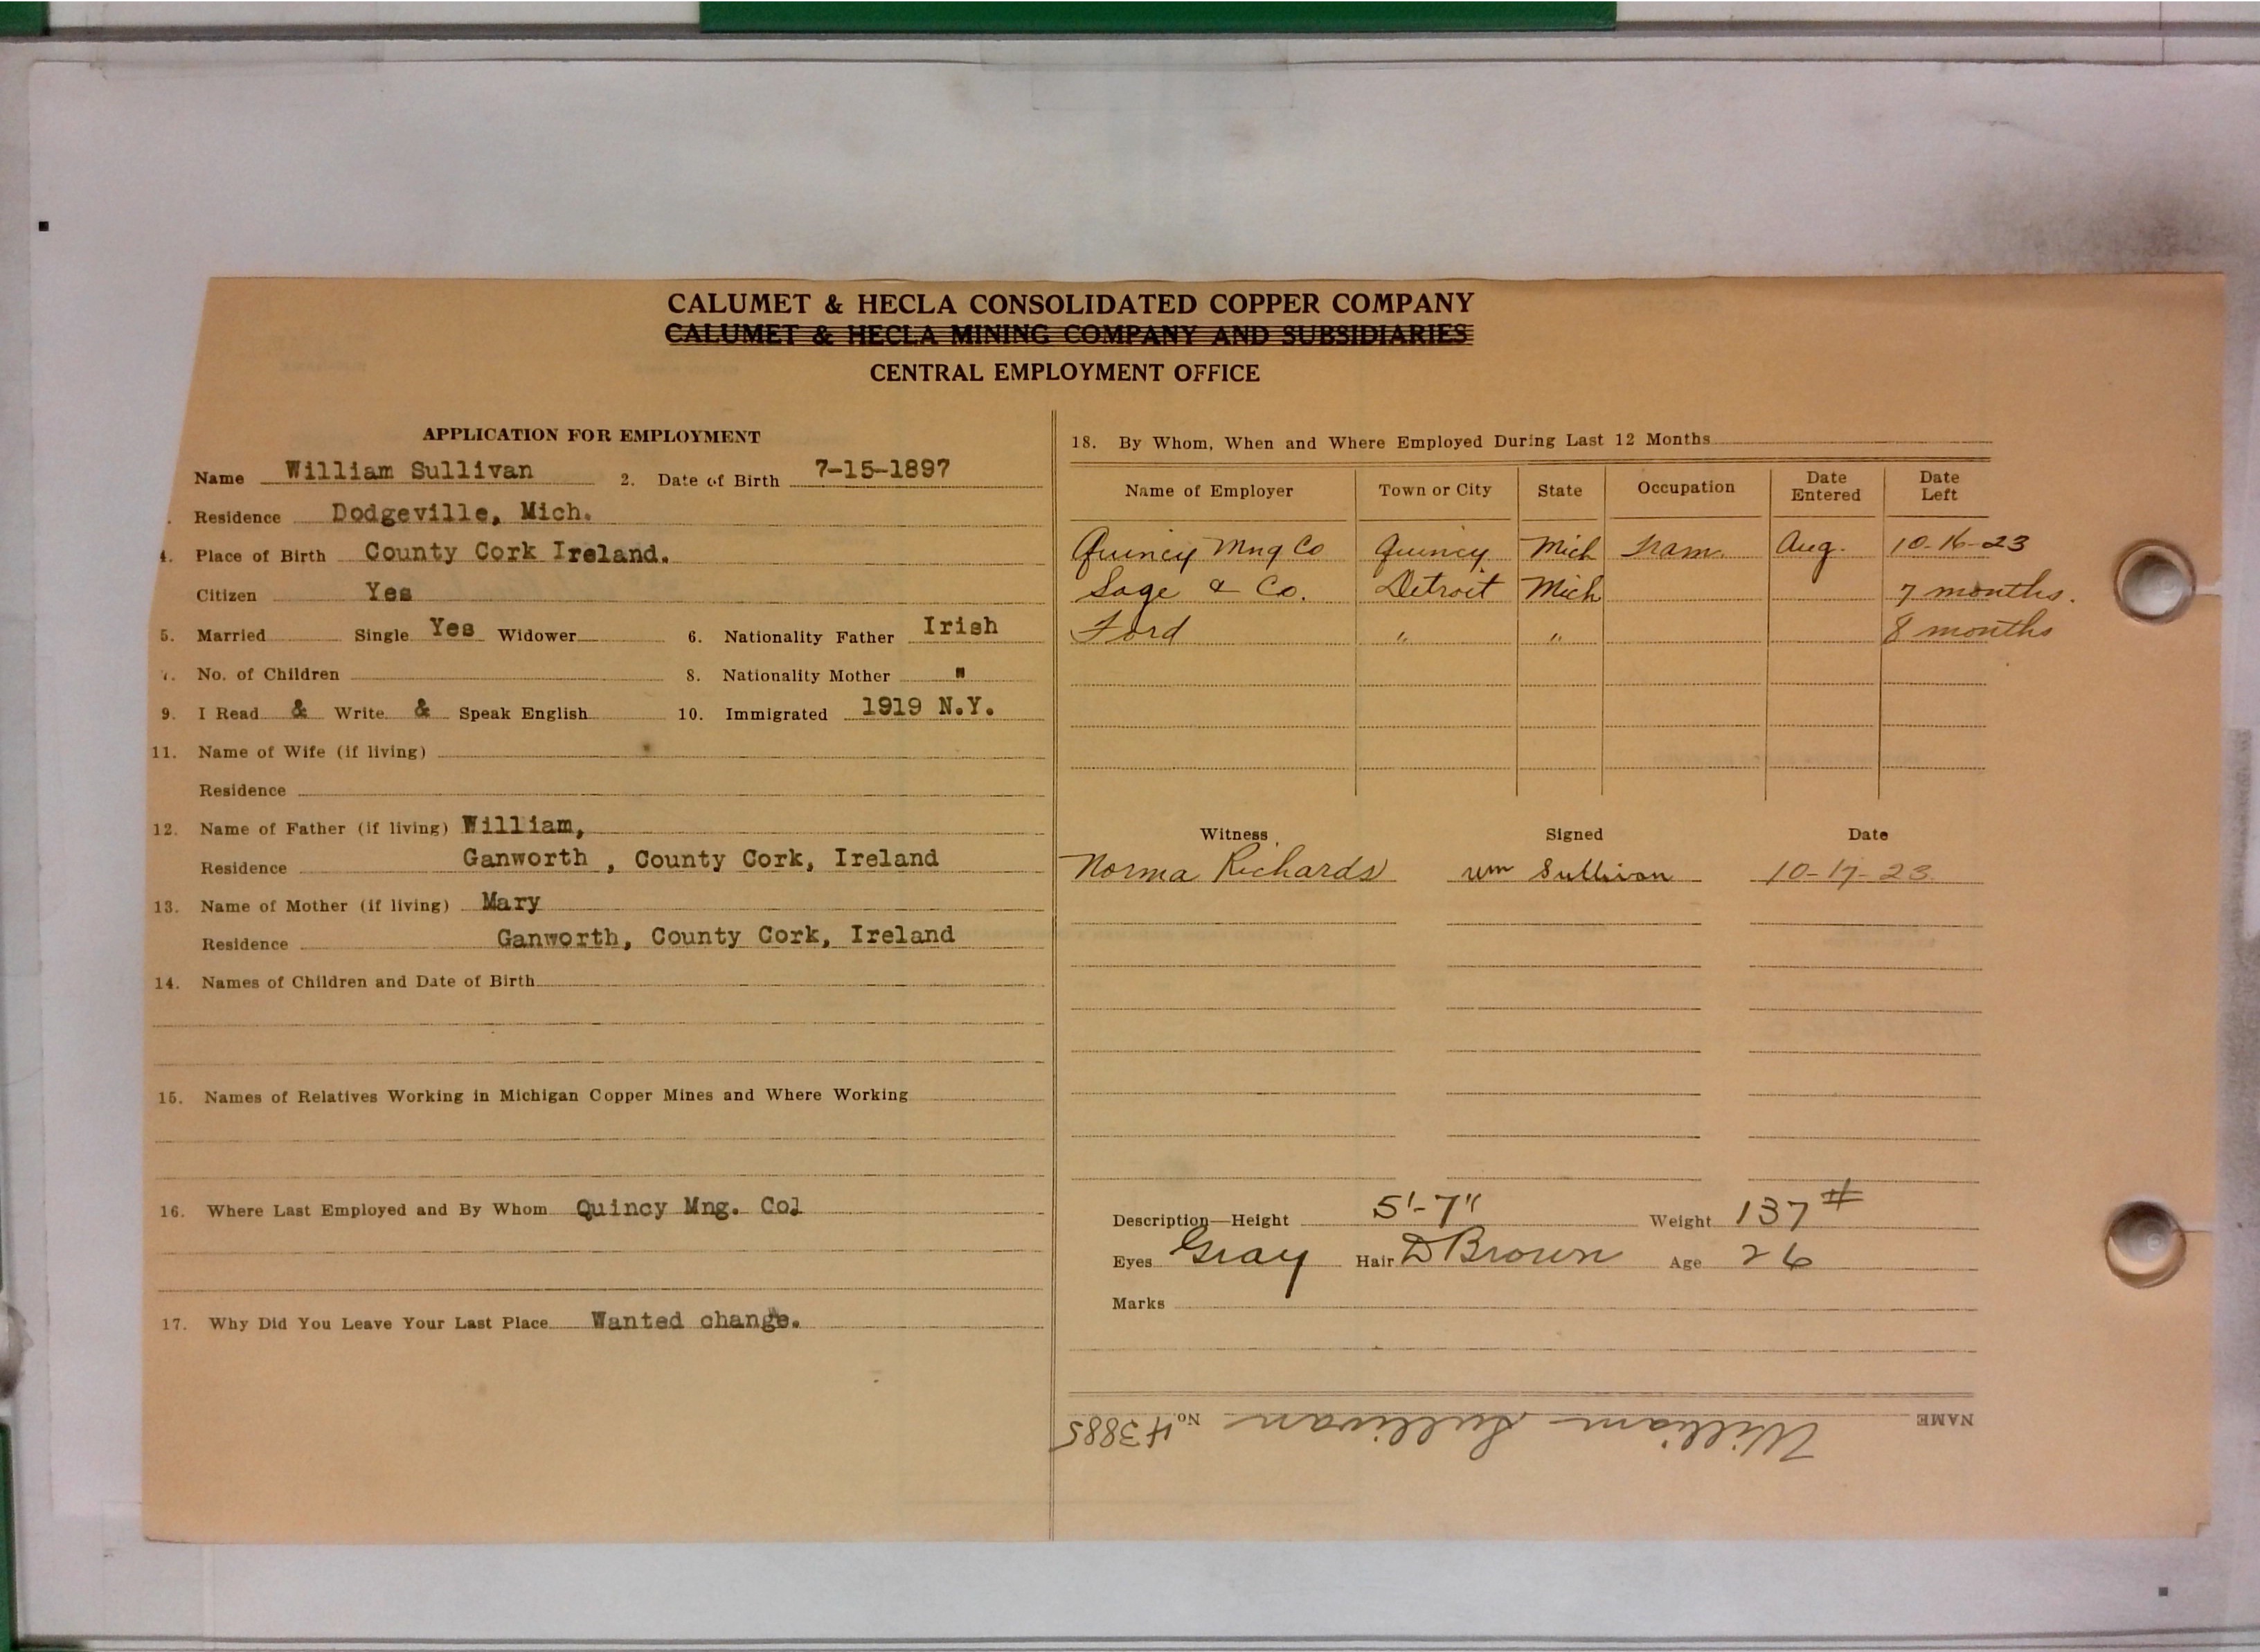 CALUMET & HECLA CONSOLIDATED COPPER COMPANY
CALUMET & HECLA MINING COMPANY AND SUBSIDIARIES
CENTRAL EMPLOYMENT OFFICE
APPLICATION FOR EMPLOYMENT
Name William Sullivan 2. Date of Birth 7-15-1897
. Residence Dodgeville, Mich.
4. Place of Birth County Cork Ireland.
Citizen Yes
5. Married Single Yes Widower 6. Nationality Father Irish
7. No. of Children 8. Nationality Mother "
9. I Read & Write & Speak English 10. Immigrated 1919 N.Y.
11. Name of Wife (if living)
Residence
12. Name of Father (if living) William,
Residence Ganworth , County Cork, Ireland
13. Name of Mother (if living) Mary
Residence Ganworth, County Cork, Ireland
14. Names of Children and Date of Birth
15. Names of Relatives Working in Michigan Copper Mines and Where Working
16. Where Last Employed and By Whom Quincy Mng. Col
17. Why Did You Leave Your Last Place Wanted change.
18. By Whom, When and Where Employed During Last 12 Months
Name of Employer Town or City State Occupation Date Entered Date Left
Quincy Mng Co Quincy Mich Tram Aug. 10-16-23
Sage & Co. Detroit Mich 7 months.
Ford " " 8 months
Witness Signed Date
Norma Richards Wm Sullivan 10-17-23
Description—Height 5'-7" Weight 137#
Eyes Gray Hair D Brown Age 26
Marks
NAME William Sullivan No. 43885